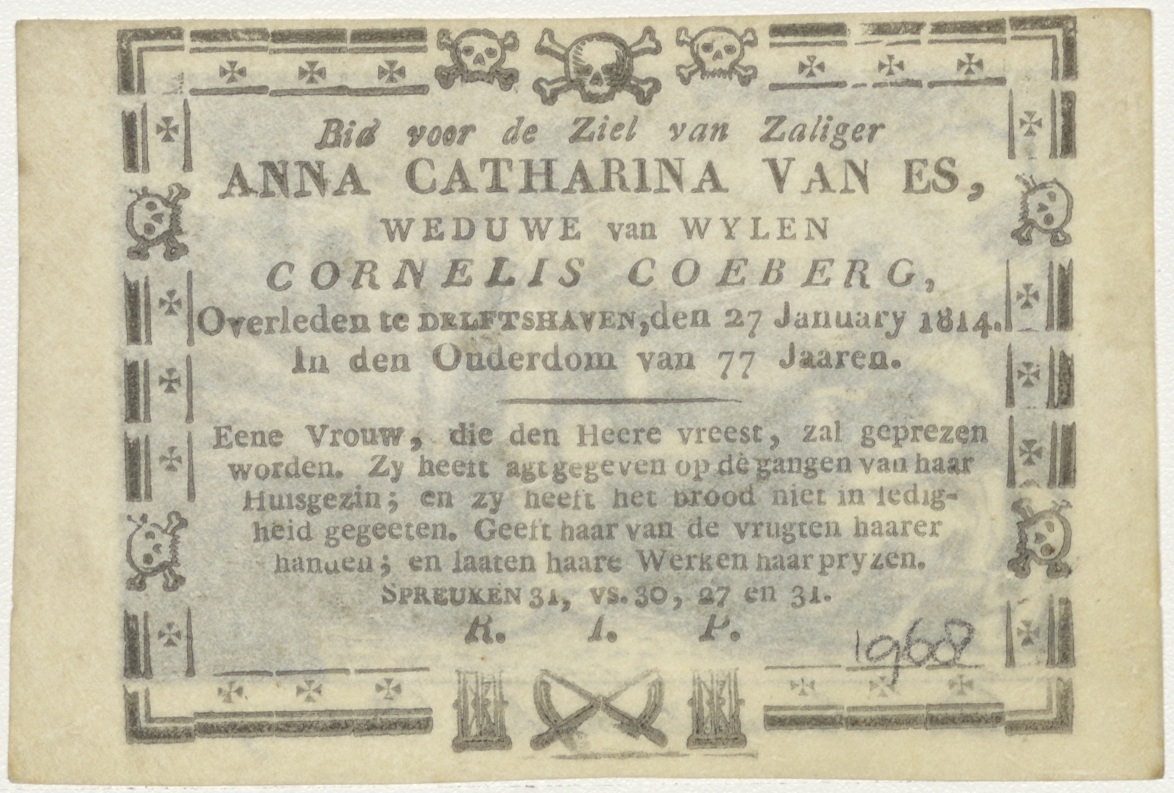 Bid voor de Ziel van Zaliger
ANNA CATHARINA VAN ES,
WEDUWE van WYLEN
CORNELIS COEBERG,
Overleden te DELFTSHAVEN, den 27 January 1814.
In den Ouderdom van 77 Jaaren.
Eene Vrouw, die den Heere vreest, zal geprezen
worden. Zy heeft agt gegeven op de gangen van haar
Huisgezin; en zy heeft het brood niet in ledig-
heid gegeeten. Geeft haar van de vrugten haarer
handen; en laaten haare Werken haar pryzen.
SPREUKEN 31, vs. 30, 27 en 31.
R. I. P.
1968